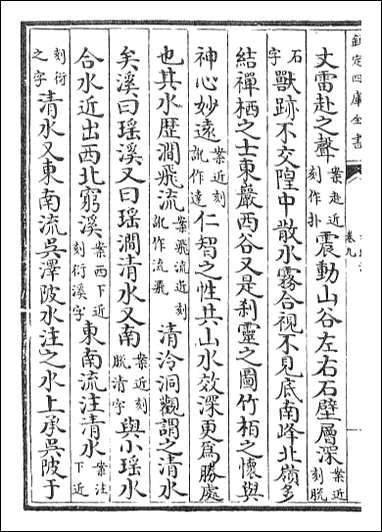 欽定四庫全書
卷九
丈雷赴之聲案赴近刻作扑震動山谷左右石壁層深案近刻脱
石字獸跡不交隍中散水霧合視不見底南峰北嶺多
結禪栖之士東巖西谷又是刹靈之圖竹栢之懷與
神心妙遠案近刻訛作達仁智之性共山水效深更為勝處
也其水歷澗飛流案飛流近刻訛作流飛清泠洞觀謂之清水
矣溪曰瑶溪又曰瑶澗清水又南案近刻脱清字與小瑶水
合水近出西北窮溪案西下近刻衍溪字東南流注清水案注下近
刻衍之字清水又東南流吳澤陂水注之水上承吳陂于